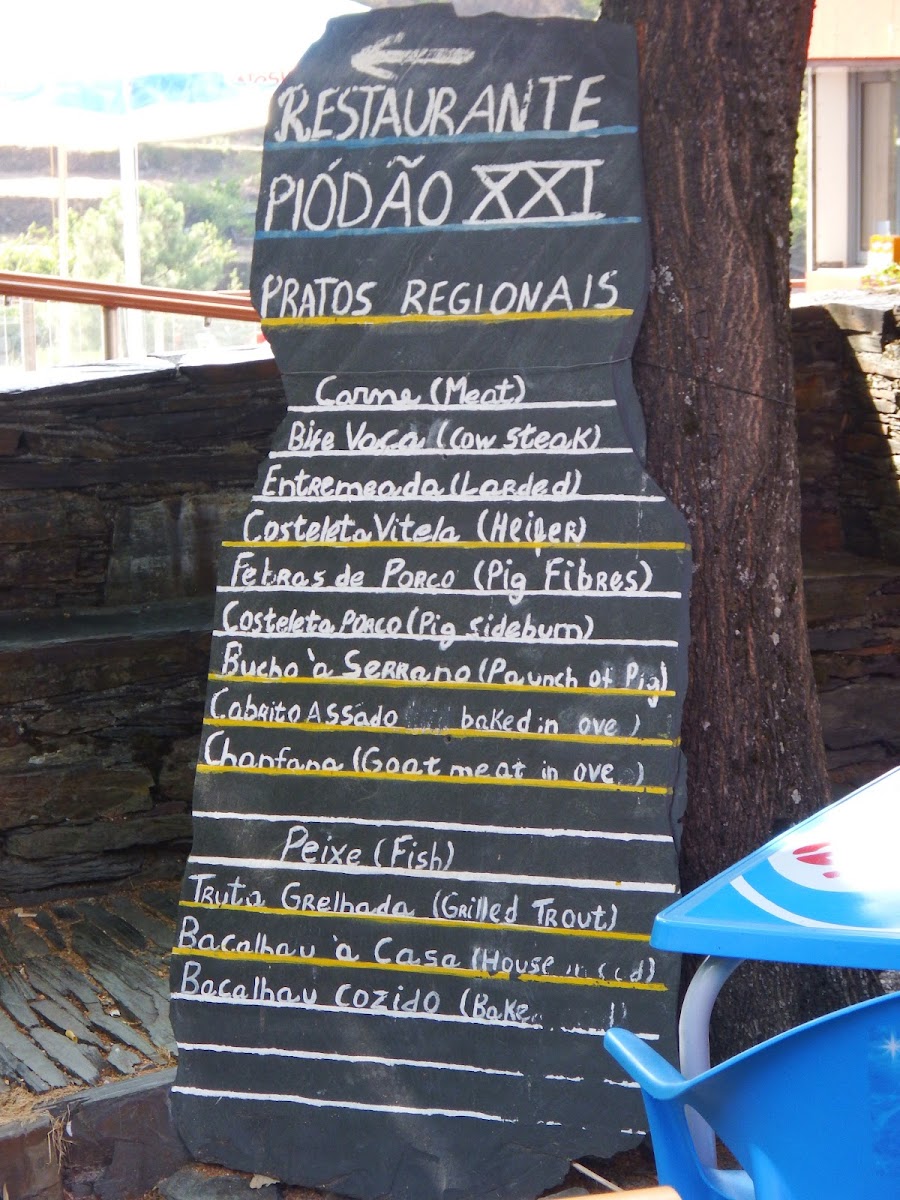 RESTAURANTE
PIÓDÃO XXI
PRATOS REGIONAIS
Carne (Meat)
Bife Vaca (Cow steak)
Entremeada (Larded)
Costeleta Vitela (Heifer)
Febras de Porco (Pig Fibres)
Costeleta PORCO (Pig sideburn)
Bucho à Serrano (Paunch of Pig)
Cabrito Assado baked in ove )
Chanfana (Goat meat in ove )
Peixe (Fish)
Truta Grelhada (Grilled Trout)
Bacalhau à Casa (House
Bacalhau COZIDO (Bake